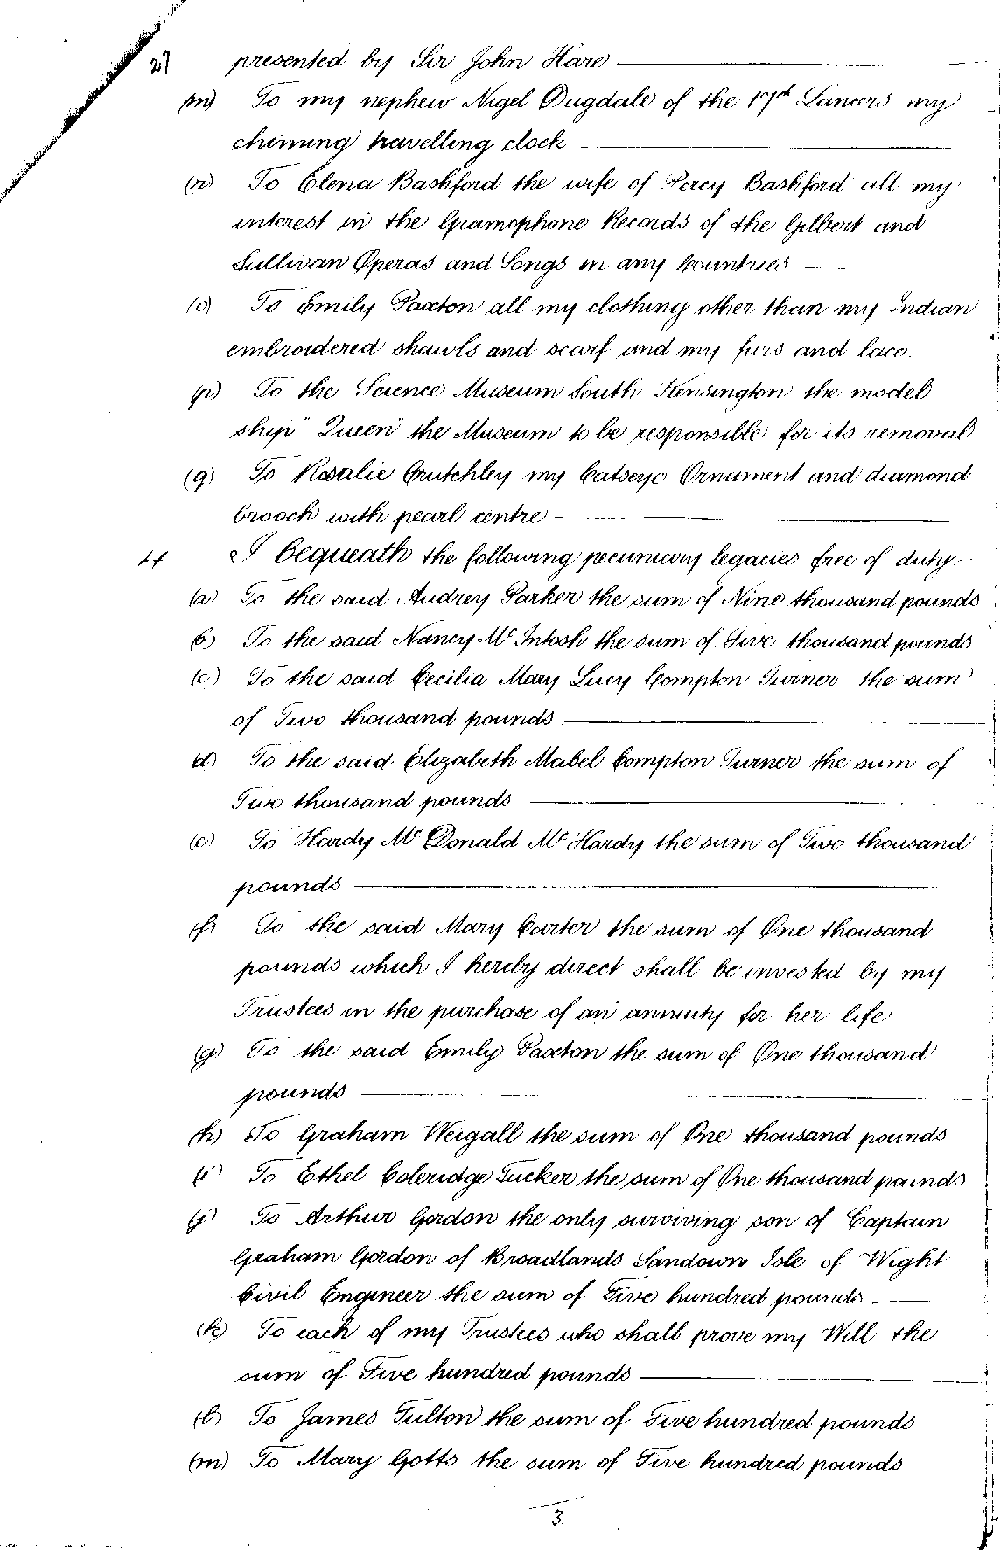 27 presented by Sir John Hare
(m) To my nephew Nigel Dugdale of the 17th Lancers my
chiming travelling clock
(n) To Elena Bashford the wife of Percy Bashford all my
interest in the Gramophone Records of the Gilbert and
Sullivan Operas and Songs in any Countries
(o) To Emily Paxton all my clothing other than my Indian
embroidered shawls and scarf and my furs and lace.
(p) To the Science Museum South Kensington the model
ship "Queen" the Museum to be responsible for its removal
(q) To Rosalie Crutchley my Catseye Ornament and diamond
brooch with pearl centre
4 I bequeath the following pecuniary legacies free of duty
(a) To the said Audrey Parker the sum of Nine thousand pounds
(b) To the said Nancy McIntosh the sum of Five thousand pounds
(c) To the said Cecilia Mary Lucy Compton Turner the sum
of Two thousand pounds
(d) To the said Elizabeth Mabel Compton Turner the sum of
Two thousand pounds
(e) To Hardy McDonald McHardy the sum of Two thousand
pounds
(f) To the said Mary Carter the sum of One thousand
pounds which I hereby direct shall be invested by my
Trustees in the purchase of an annuity for her life
(g) To the said Emily Paxton the sum of One thousand
pounds
(h) To Graham Weigall the sum of One thousand pounds
(i) To Ethel Coleridge Tucker the sum of One thousand pounds
(j) To Arthur Gordon the only surviving son of Captain
Graham Gordon of Broadlands Sandown Isle of Wight
Civil Engineer the sum of Five hundred pounds
(k) To each of my Trustees who shall prove my Will the
sum of Five hundred pounds
(l) To James Fulton the sum of Five hundred pounds
(m) To Mary Gotts the sum of Five hundred pounds
3